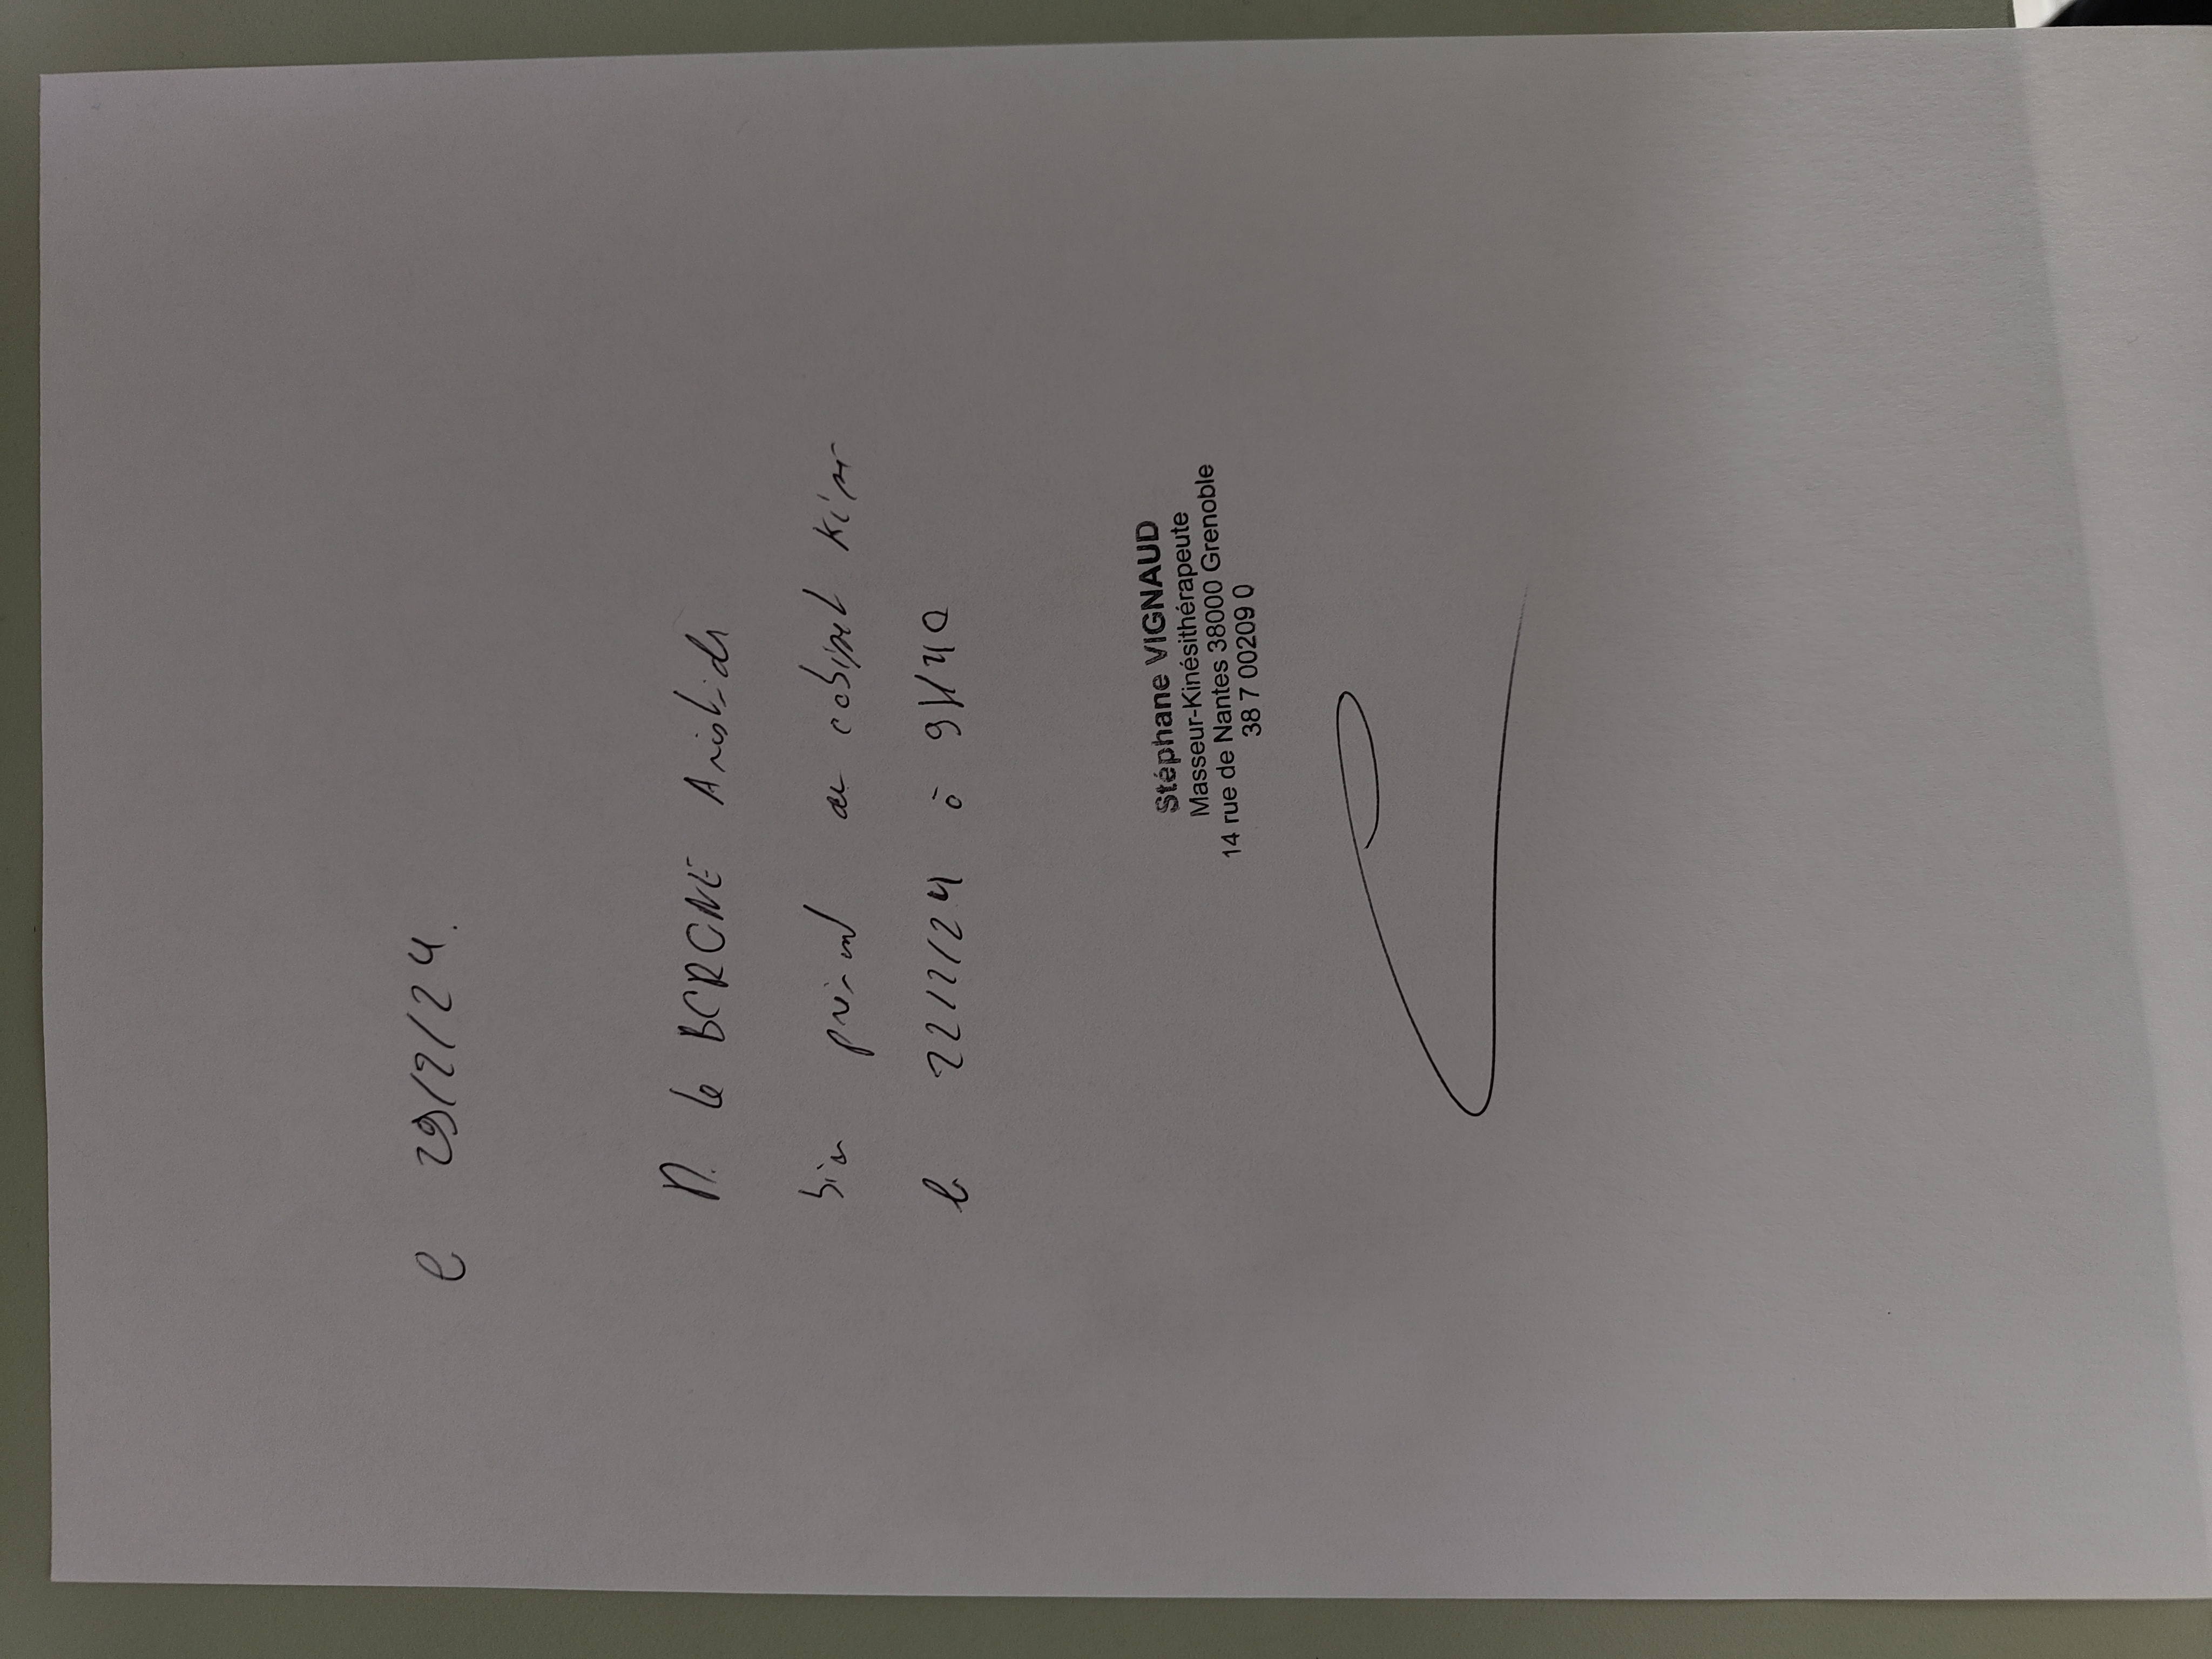 le 29/2/24.
M. Le BORGNE Aristide
bien présent au cabinet kiné
le 22/2/24 à 9H40
Stéphane VIGNAUD
Masseur-Kinésithérapeute
14 rue de Nantes 38000 Grenoble
38 7 00209 0